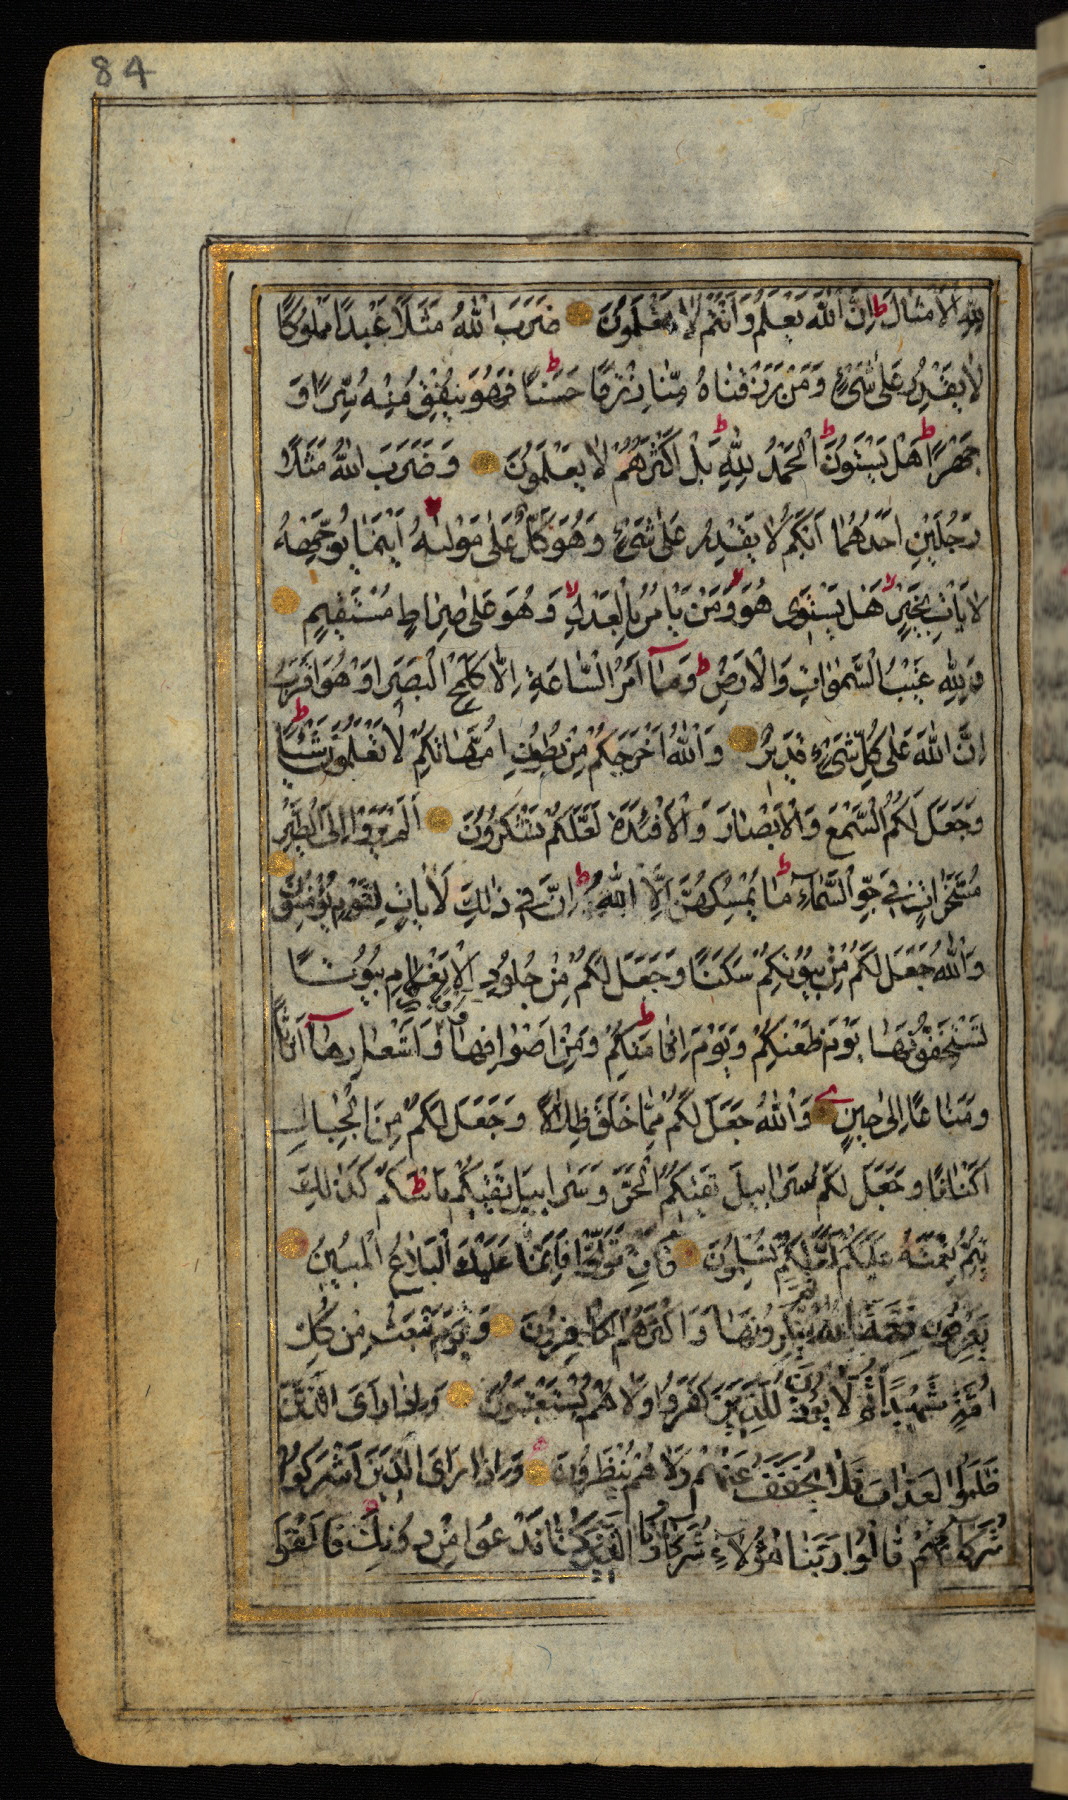 84
لِلّٰهِ الْاَمْثَالَ ط اِنَّ اللّٰهَ يَعْلَمُ وَاَنْتُمْ لَا تَعْلَمُونَ ضَرَبَ اللّٰهُ مَثَلًا عَبْدًا مَمْلُوكًا
لَا يَقْدِرُ عَلٰى شَىْءٍ وَمَنْ رَزَقْنَاهُ مِنَّا رِزْقًا حَسَنًا ط فَهُوَ يُنْفِقُ مِنْهُ سِرًّا وَ
جَهْرًا ط هَلْ يَسْتَوُنَ ط اَلْحَمْدُ لِلّٰهِ ط بَلْ اَكْثَرُهُمْ لَا يَعْلَمُونَ وَضَرَبَ اللّٰهُ مَثَلًا
رَجُلَيْنِ اَحَدُهُمَا اَبْكَمُ لَا يَقْدِرُ عَلٰى شَىْءٍ وَهُوَ كَلٌّ عَلٰى مَوْلٰيهُ اَيْنَمَا يُوَجِّهْهُ
لَا يَاْتِ بِخَيْرٍ لا هَلْ يَسْتَوِى هُوَ لا وَمَنْ يَاْمُرُ بِالْعَدْلِ لا وَهُوَ عَلٰى صِرَاطٍ مُسْتَقِيمٍ
وَلِلّٰهِ غَيْبُ السَّمٰوَاتِ وَالْاَرْضِ ط وَمَآ اَمْرُ السَّاعَةِ اِلَّا كَلَمْحِ الْبَصَرِ اَوْ هُوَ اَقْرَبُ ط
اِنَّ اللّٰهَ عَلٰى كُلِّ شَىْءٍ قَدِيرٌ وَاللّٰهُ اَخْرَجَكُمْ مِنْ بُطُونِ اُمَّهَاتِكُمْ لَا تَعْلَمُونَ شَيْئًا
وَجَعَلَ لَكُمُ السَّمْعَ وَالْاَبْصَارَ وَالْاَفْئِدَةَ لَعَلَّكُمْ تَشْكُرُونَ اَلَمْ يَرَوْا اِلَى الطَّيْرِ
مُسَخَّرَاتٍ فِى جَوِّ السَّمَآءِ ط مَا يُمْسِكُهُنَّ اِلَّا اللّٰهُ ط اِنَّ فِى ذٰلِكَ لَاٰيَاتٍ لِقَوْمٍ يُؤْمِنُونَ
وَاللّٰهُ جَعَلَ لَكُمْ مِنْ بُيُوتِكُمْ سَكَنًا وَجَعَلَ لَكُمْ مِنْ جُلُودِ الْاَنْعَامِ بُيُوتًا
تَسْتَخِفُّونَهَا يَوْمَ ظَعْنِكُمْ وَيَوْمَ اِقَامَتِكُمْ ط وَمِنْ اَصْوَافِهَا وَاَشْعَارِهَآ اَثَاثًا
وَمَتَاعًا اِلٰى حِينٍ وَاللّٰهُ جَعَلَ لَكُمْ مِمَّا خَلَقَ ظِلَالًا وَجَعَلَ لَكُمْ مِنَ الْجِبَالِ
اَكْنَانًا وَجَعَلَ لَكُمْ سَرَابِيلَ تَقِيكُمُ الْحَرَّ وَسَرَابِيلَ تَقِيكُمْ بَاْسَكُمْ ط كَذٰلِكَ
يُتِمُّ نِعْمَتَهُ عَلَيْكُمْ لَعَلَّكُمْ تُسْلِمُونَ فَاِنْ تَوَلَّوْا فَاِنَّمَا عَلَيْكَ الْبَلَاغُ الْمُبِينُ
يَعْرِفُونَ نِعْمَةَ اللّٰهِ ثُمَّ يُنْكِرُونَهَا وَاَكْثَرُهُمُ الْكَافِرُونَ وَيَوْمَ نَبْعَثُ مِنْ كُلِّ
اُمَّةٍ شَهِيدًا ثُمَّ لَا يُؤْذَنُ لِلَّذِينَ كَفَرُوا وَلَا هُمْ يُسْتَعْتَبُونَ وَاِذَا رَاَى الَّذِينَ
ظَلَمُوا الْعَذَابَ فَلَا يُخَفَّفُ عَنْهُمْ وَلَا هُمْ يُنْظَرُونَ وَاِذَا رَاَى الَّذِينَ اَشْرَكُوا
شُرَكَآءَهُمْ قَالُوا رَبَّنَا هٰؤُلَآءِ شُرَكَآؤُنَا الَّذِينَ كُنَّا نَدْعُوا مِنْ دُونِكَ فَاَلْقَوْا